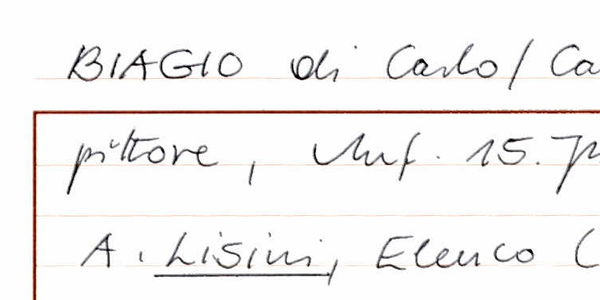 BIAGIO di Carlo/Ca
pittore, Anf. 15.
A. Lisini, Elenco (